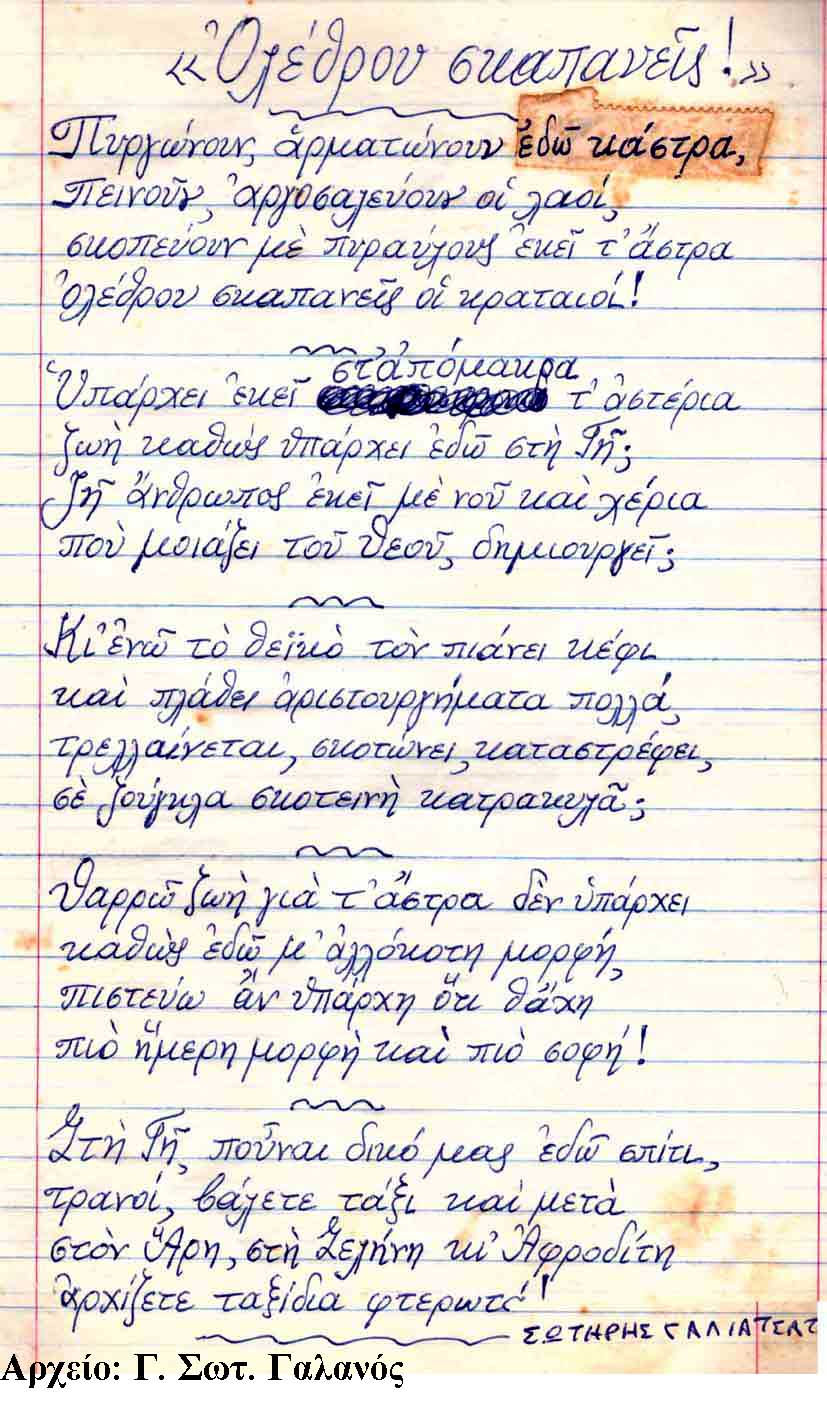 «Ὀλέθρου σκαπανεῖς!»
Πυργώνουν, ἁρματώνουν ἐδῶ κάστρα,
Πεινοῦν, ἀργοσαλεύουν οἱ λαοί,
σκοπεύουν μὲ πυραύλους ἐκεῖ τ' ἄστρα
ὀλέθρου σκαπανεῖς οἱ κραταιοί!
στ' ἀπόμακρα
Ὑπάρχει ἐκεῖ τ' ἀστέρια
ζωὴ καθὼς ὑπάρχει ἐδῶ στὴ Γῆ;
Ζῆ ἄνθρωπος ἐκεῖ μὲ νοῦ καὶ χέρια
ποὺ μοιάζει τοῦ Θεοῦ, δημιουργεῖ;
Κι' ἐνῶ τὸ θεϊκὸ τὸν πιάνει κέφι
καὶ πλάθει ἀριστουργήματα πολλά,
τρελλαίνεται, σκοτώνει, καταστρέφει,
σὲ ζούγκλα σκοτεινὴ κατρακυλᾶ;
Θαρρῶ ζωὴ γιὰ τ' ἄστρα δὲν ὑπάρχει
καθὼς ἐδῶ μ' ἀλλόκοτη μορφή,
πιστεύω ἂν ὑπάρχη ὅτι θἄχη
πιὸ ἥμερη μορφὴ καὶ πιὸ σοφή!
Στὴ Γῆ, ποὖναι δικό μας ἐδῶ σπίτι,
τρανοί, βάλετε τάξι καὶ μετὰ
στὸν Ἄρη, στὴ Σελήνη κι' Ἀφροδίτη
ἀρχίζετε ταξίδια φτερωτά!
ΣΩΤΗΡΗΣ ΓΑΛΙΑΤΣΑΤ
Αρχείο: Γ. Σωτ. Γαλανός